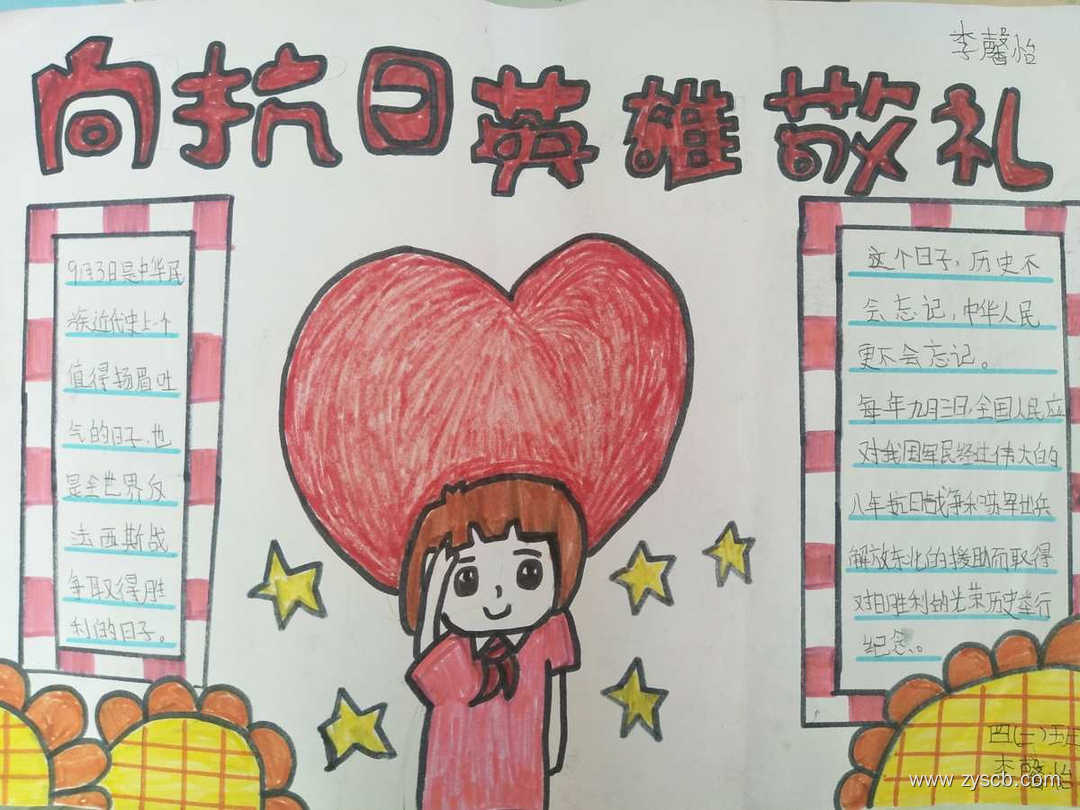 李馨怡
向抗日英雄敬礼
9月3日是中华民
族近代史上一个
值得扬眉吐
气的日子，也
是全世界反
法西斯战
争取得胜
利的日子。
这个日子，历史不
会忘记，中华人民
更不会忘记。
每年九月三日，全国人民应
对我国军民经过伟大的
八年抗日战争和苏军出兵
解放东北的援助而取得
对日胜利的光荣历史举行
纪念。
四(三)班
李馨怡
www.zyscb.com